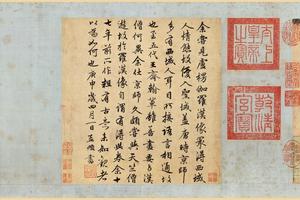 太上皇帝之寶
乾清宮寶
余嘗見盧楞伽羅漢像最得西域
人情態故優入聖域蓋唐時京師
多有西域人耳目所接語言相通故
也至五代王齊翰輩雖善畫要與漢
僧何異余仕京師久頗嘗與天竺僧
遊故於羅漢像自謂有得此卷余十
七年前所作粗有古意未知觀者
以為如何也庚申歲四月一日孟頫書